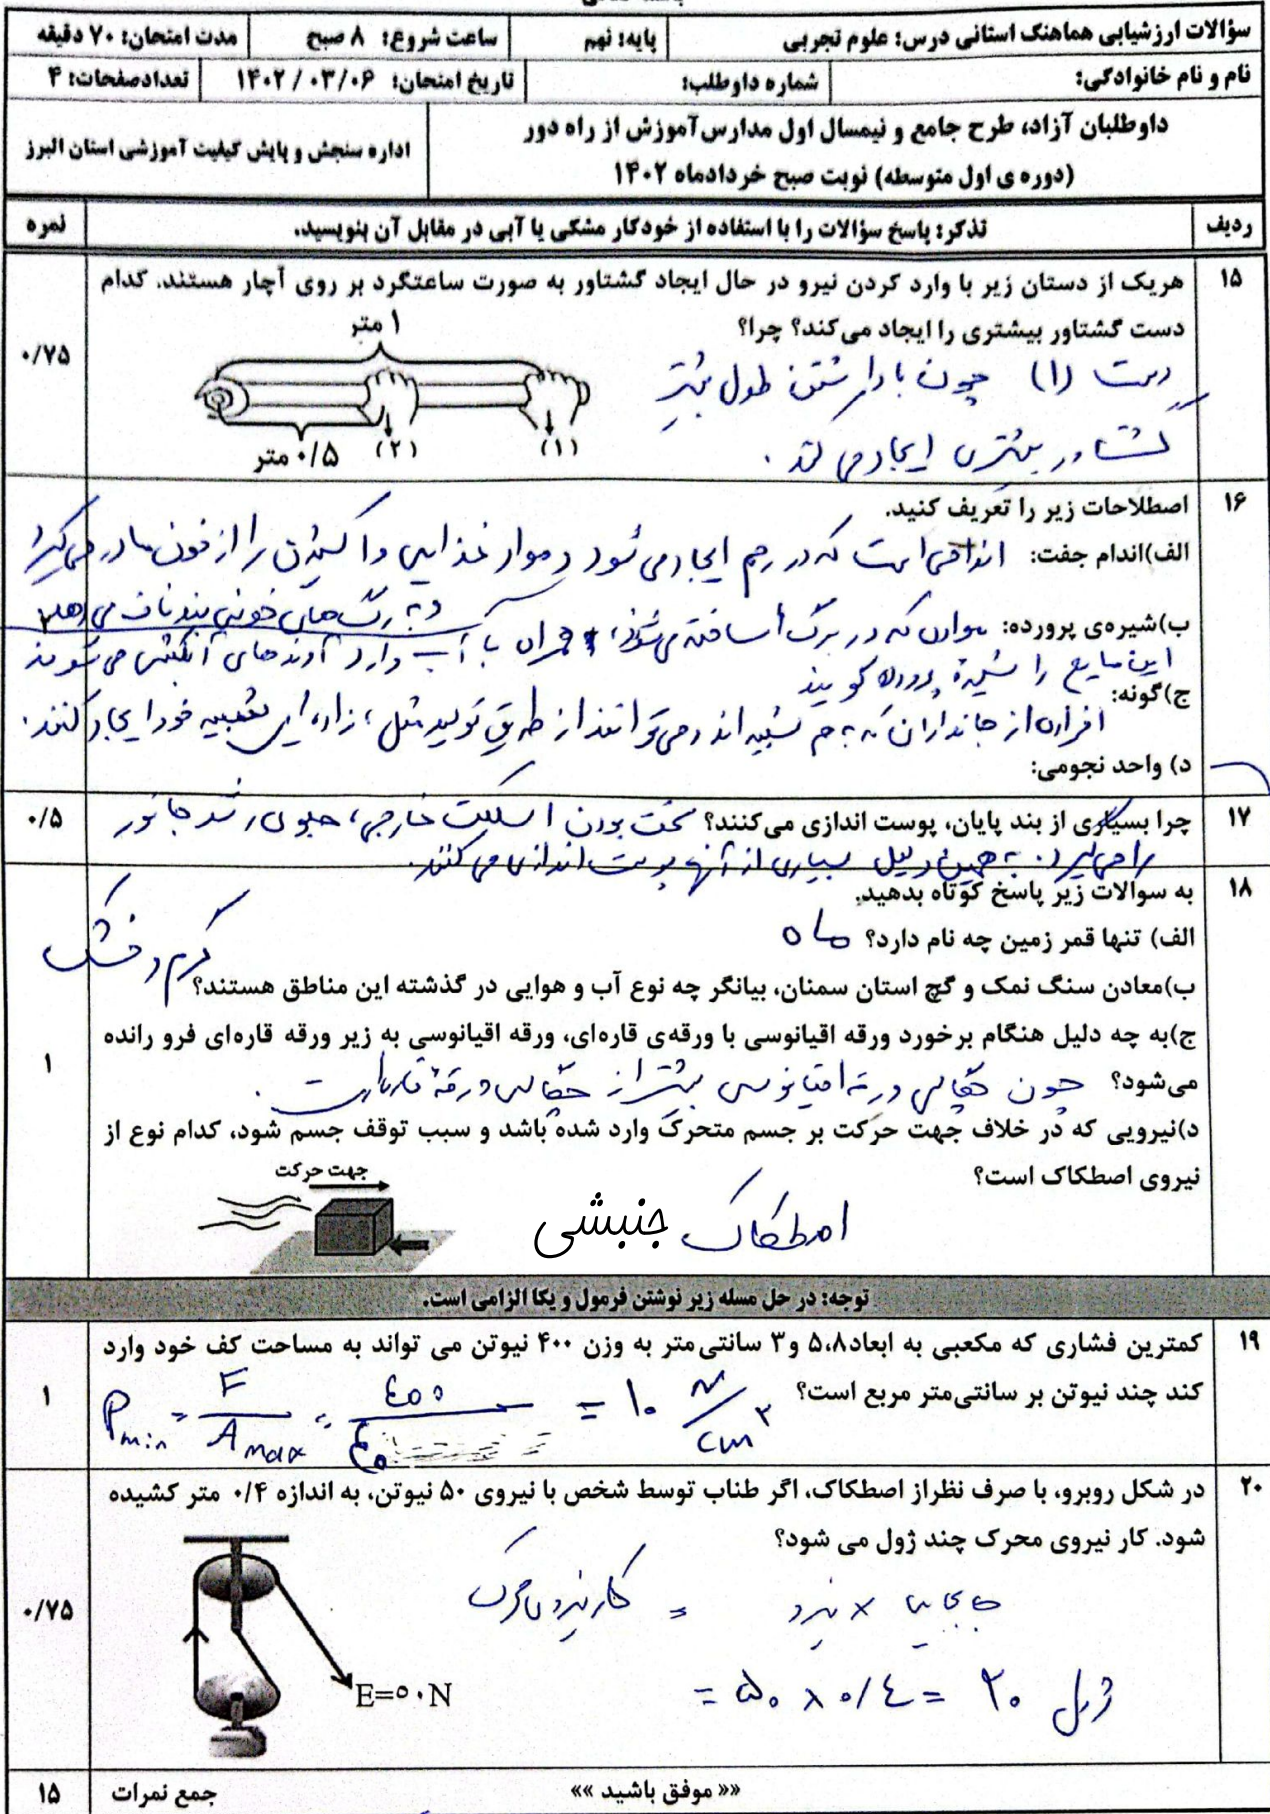 سؤالات ارزشیابی هماهنگ استانی درس: علوم تجربی
پایه: نهم
ساعت شروع: ۸ صبح
مدت امتحان: ۷۰ دقیقه
نام و نام خانوادگی:
شماره داوطلب:
تاریخ امتحان: ۱۴۰۲/۰۳/۰۶
تعدادصفحات: ۴
داوطلبان آزاد، طرح جامع و نیمسال اول مدارس آموزش از راه دور
(دوره ی اول متوسطه) نوبت صبح خردادماه ۱۴۰۲
اداره سنجش و پایش کیفیت آموزشی استان البرز
ردیف
تذکر: پاسخ سؤالات را با استفاده از خودکار مشکی یا آبی در مقابل آن بنویسید.
نمره
۱۵
هریک از دستان زیر با وارد کردن نیرو در حال ایجاد گشتاور به صورت ساعتگرد بر روی آچار هستند. کدام
دست گشتاور بیشتری را ایجاد می‌کند؟ چرا؟
۰/۷۵
۱ متر
۰/۵ متر
(۲)
(۱)
دست (۱) چون با داشتن طول بیشتر
گشتاور بیشتری ایجاد می کند.
۱۶
اصطلاحات زیر را تعریف کنید.
الف)اندام جفت: اندامی است که در رحم ایجاد می شود و مواد غذایی و اکسیژن را از خون مادر می گیرد
و به رگ های خونی بند ناف می دهد
ب)شیره‌ی پرورده: موادی که در برگ ساخته می شوند، همراه با آب وارد آوندهای آبکشی می شوند
این مایع را شیره پرورده گویند
ج)گونه: افرادی از جانداران که به هم شبیه اند و می توانند از طریق تولید مثل، زاده ای شبیه خود ایجاد کنند.
د) واحد نجومی:
۱۷
چرا بسیاری از بند پایان، پوست اندازی می‌کنند؟ سخت بودن اسکلت خارجی، جلوی رشد جانور
را می گیرد. به همین دلیل بسیاری از آنها پوست اندازی می کنند.
۰/۵
۱۸
به سوالات زیر پاسخ کوتاه بدهید.
الف) تنها قمر زمین چه نام دارد؟ ماه
ب)معادن سنگ نمک و گچ استان سمنان، بیانگر چه نوع آب و هوایی در گذشته این مناطق هستند؟ گرم و خشک
ج)به چه دلیل هنگام برخورد ورقه اقیانوسی با ورقه‌ی قاره‌ای، ورقه اقیانوسی به زیر ورقه قاره‌ای فرو رانده
می‌شود؟ چون چگالی ورقه اقیانوسی بیشتر از چگالی ورقه قاره‌ای است.
۱
د)نیرویی که در خلاف جهت حرکت بر جسم متحرک وارد شده باشد و سبب توقف جسم شود، کدام نوع از
نیروی اصطکاک است؟
جهت حرکت
اصطکاک جنبشی
توجه: در حل مسله زیر نوشتن فرمول و یکا الزامی است.
۱۹
کمترین فشاری که مکعبی به ابعاد۵،۸ و۳ سانتی‌متر به وزن ۴۰۰ نیوتن می تواند به مساحت کف خود وارد
کند چند نیوتن بر سانتی‌متر مربع است؟
۱
Pmin = F / Amax = ۴۰۰ / ۴۰ = ۱۰ N/cm²
۲۰
در شکل روبرو، با صرف نظراز اصطکاک، اگر طناب توسط شخص با نیروی ۵۰ نیوتن، به اندازه ۰/۴ متر کشیده
شود. کار نیروی محرک چند ژول می شود؟
۰/۷۵
جابجایی × نیرو = کار نیروی محرک
= ۵۰ × ۰/۴ = ۲۰ ژول
E=۵۰N
«« موفق باشید »»
جمع نمرات
۱۵